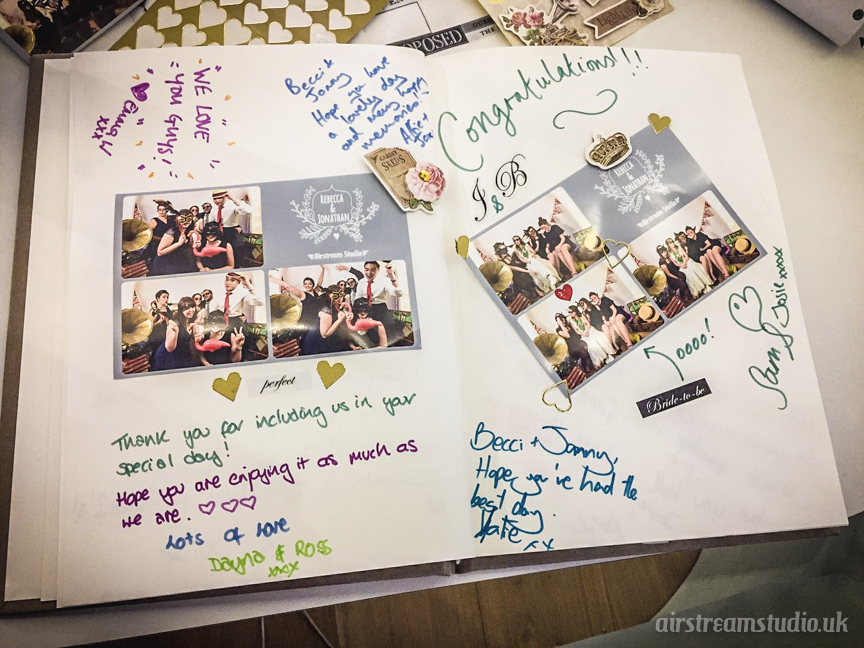 WE LOVE
YOU GUYS!
Emma W
xxx
Becci +
Jonny
Hope you have
a lovely day
and many happy
memories!!
Alfie +
GARDEN
SEEDS
REBECCA
&
JONATHAN
Airstream Studio
perfect
Thank you for including us in your
special day!
Hope you are enjoying it as much as
we are. ♡♡♡
Lots of love
Dayna & Ross
xxx
POSED
THE
Congratulations!!!
J & B
REBECCA
&
JONATHAN
Airstream Studio
oooo!
Bride-to-be
Sam & Josie xxxxx
Becci + Jonny,
Hope you've had the
best day.
Katie
xx
airstreamstudio.uk